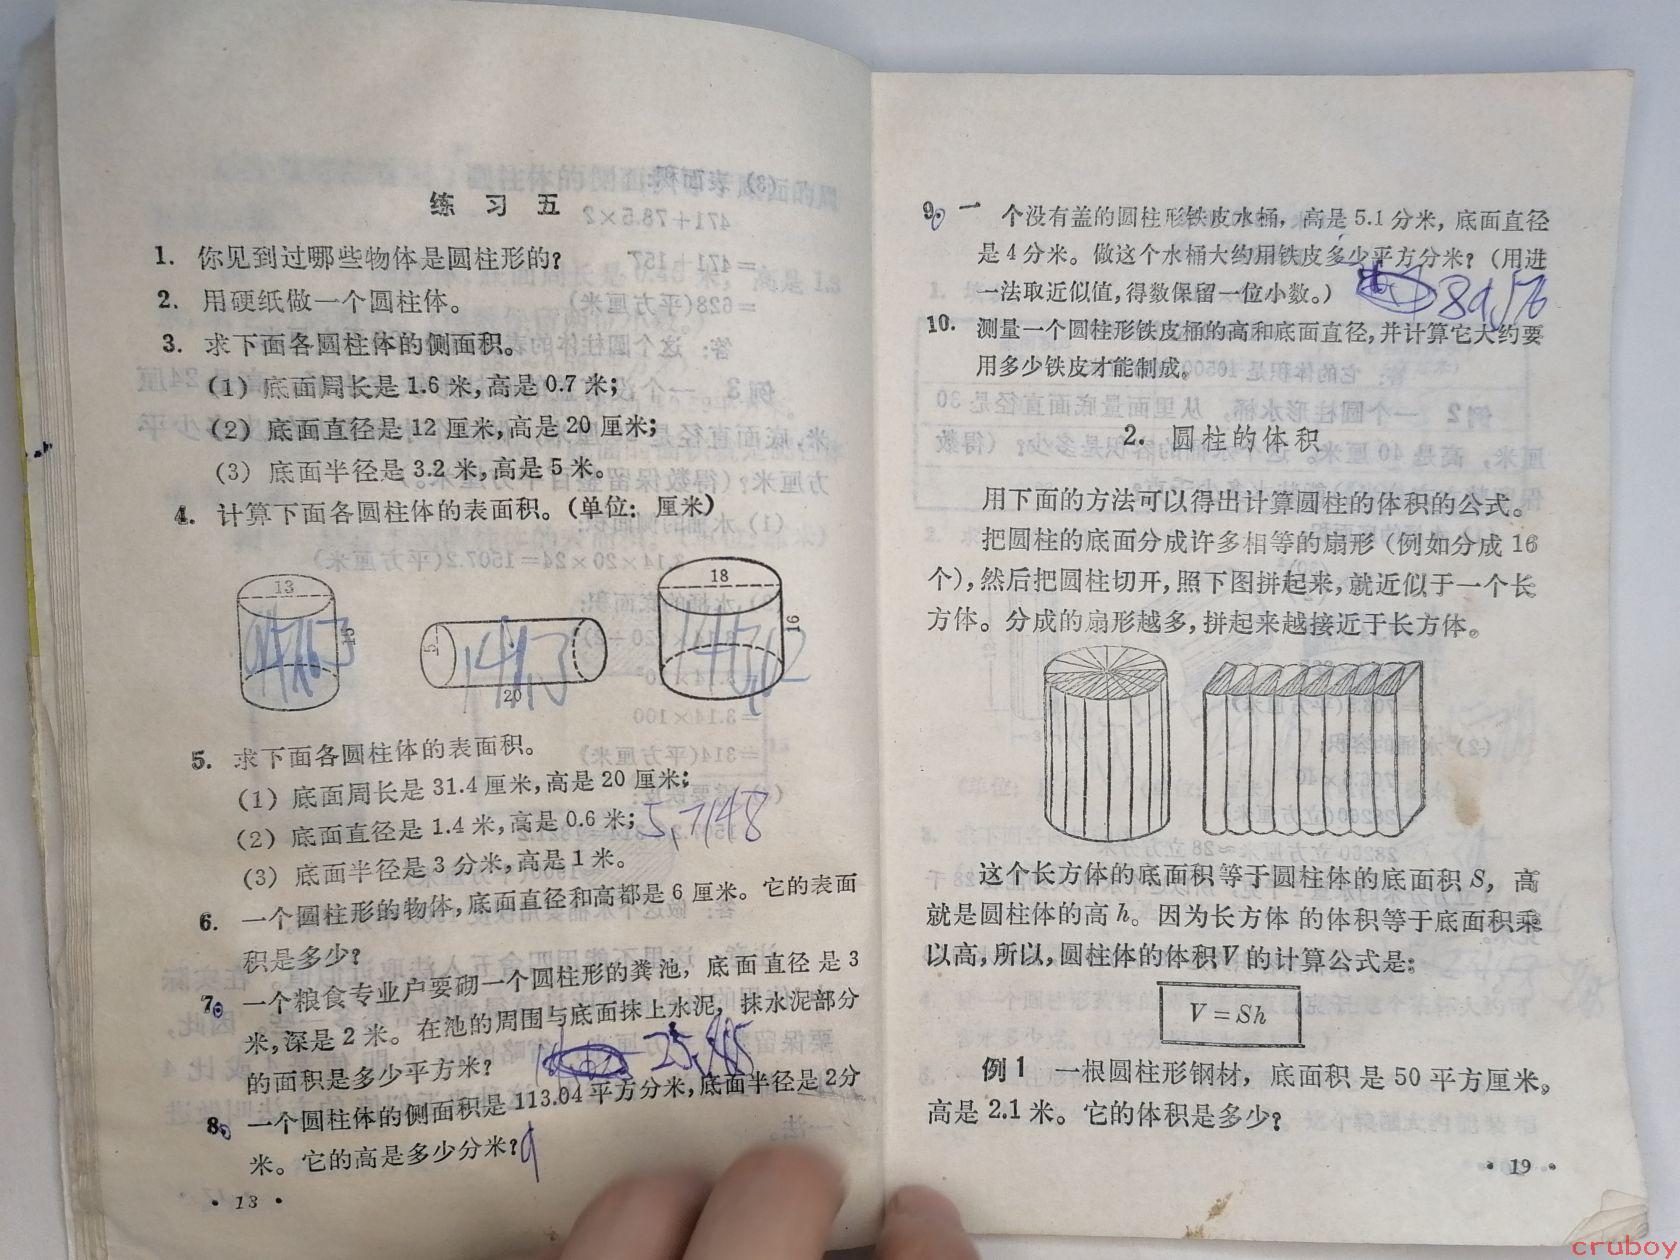 练 习 五
1. 你见到过哪些物体是圆柱形的?
2. 用硬纸做一个圆柱体。
3. 求下面各圆柱体的侧面积。
(1) 底面周长是 1.6 米,高是 0.7 米;
(2) 底面直径是 12 厘米,高是 20 厘米;
(3) 底面半径是 3.2 米,高是 5 米。
4. 计算下面各圆柱体的表面积。(单位: 厘米)
13
18
20
5. 求下面各圆柱体的表面积。
(1) 底面周长是 31.4 厘米,高是 20 厘米;
(2) 底面直径是 1.4 米,高是 0.6 米;
(3) 底面半径是 3 分米,高是 1 米。
6. 一个圆柱形的物体,底面直径和高都是 6 厘米。它的表面
积是多少?
7. 一个粮食专业户要砌一个圆柱形的粪池, 底面直径是 3
米,深是 2 米。在池的周围与底面抹上水泥, 抹水泥部分
的面积是多少平方米?
8. 一个圆柱体的侧面积是 113.04 平方分米,底面半径是 2 分
米。它的高是多少分米? 9
9. 一 个没有盖的圆柱形铁皮水桶, 高是 5.1 分米, 底面直径
是 4 分米。做这个水桶大约用铁皮多少平方分米? (用进
一法取近似值,得数保留一位小数。)
10. 测量一个圆柱形铁皮桶的高和底面直径,并计算它大约要
用多少铁皮才能制成。
2. 圆柱的体积
用下面的方法可以得出计算圆柱的体积的公式。
把圆柱的底面分成许多相等的扇形 (例如分成 16
个),然后把圆柱切开,照下图拼起来,就近似于一个长
方体。分成的扇形越多,拼起来越接近于长方体。
这个长方体的底面积等于圆柱体的底面积 S, 高
就是圆柱体的高 h。因为长方体 的体积等于底面积乘
以高,所以,圆柱体的体积 V 的计算公式是:
V = Sh
例 1 一根圆柱形钢材, 底面积 是 50 平方厘米,
高是 2.1 米。它的体积是多少?
· 19 ·
cruboy